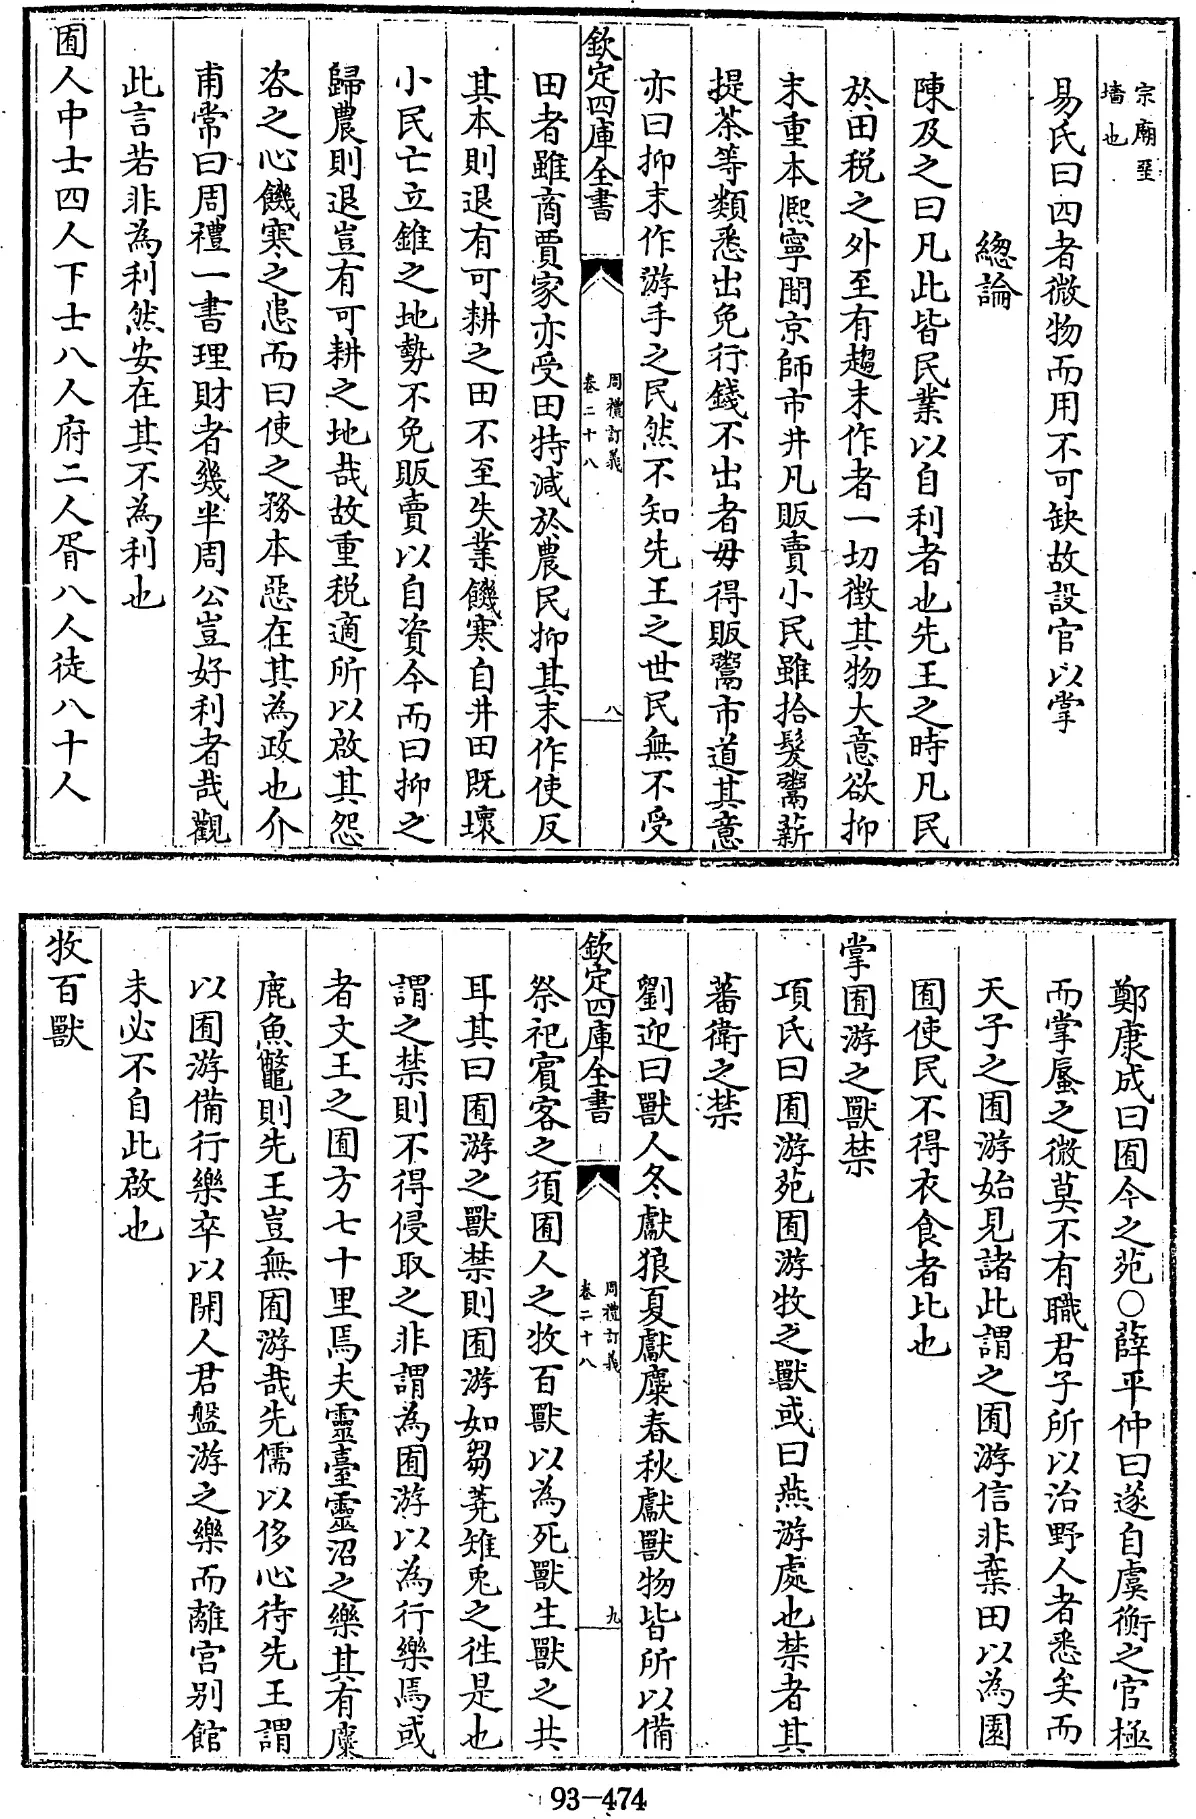 宗廟堊
墻也
易氏曰四者微物而用不可缺故設官以掌
總論
陳及之曰凡此皆民業以自利者也先王之時凡民
於田税之外至有趨末作者一切徴其物大意欲抑
末重本熈寧間京師市井凡販賣小民雖拾髮鬻薪
提茶等類悉出免行錢不出者毋得販鬻市道其意
亦曰抑末作游手之民然不知先王之世民無不受
欽定四庫全書
周禮訂義
卷二十八
八
田者雖商賈家亦受田特减於農民抑其末作使反
其本則退有可耕之田不至失業饑寒自井田既壞
小民亡立錐之地勢不免販賣以自資今而曰抑之
歸農則退豈有可耕之地哉故重税適所以啟其怨
咨之心饑寒之患而曰使之務本惡在其為政也介
甫常曰周禮一書理財者幾半周公豈好利者哉觀
此言若非為利然安在其不為利也
囿人中士四人下士八人府二人胥八人徒八十人
鄭康成曰囿今之苑○薛平仲曰遂自虞衡之官極
而掌蜃之微莫不有職君子所以治野人者悉矣而
天子之囿游始見諸此謂之囿游信非棄田以為園
囿使民不得衣食者比也
掌囿游之獸禁
項氏曰囿游苑囿游牧之獸或曰燕游處也禁者其
蕃衛之禁
劉迎曰獸人冬獻狼夏獻麋春秋獻獸物皆所以備
欽定四庫全書
周禮訂義
卷二十八
九
祭祀賓客之須囿人之牧百獸以為死獸生獸之共
耳其曰囿游之獸禁則囿游如芻蕘雉兎之徃是也
謂之禁則不得侵取之非謂為囿游以為行樂焉或
者文王之囿方七十里焉夫靈臺靈沼之樂其有麋
鹿魚鼈則先王豈無囿游哉先儒以侈心待先王謂
以囿游備行樂卒以開人君盤游之樂而離宫别館
未必不自此啟也
牧百獸
93-474